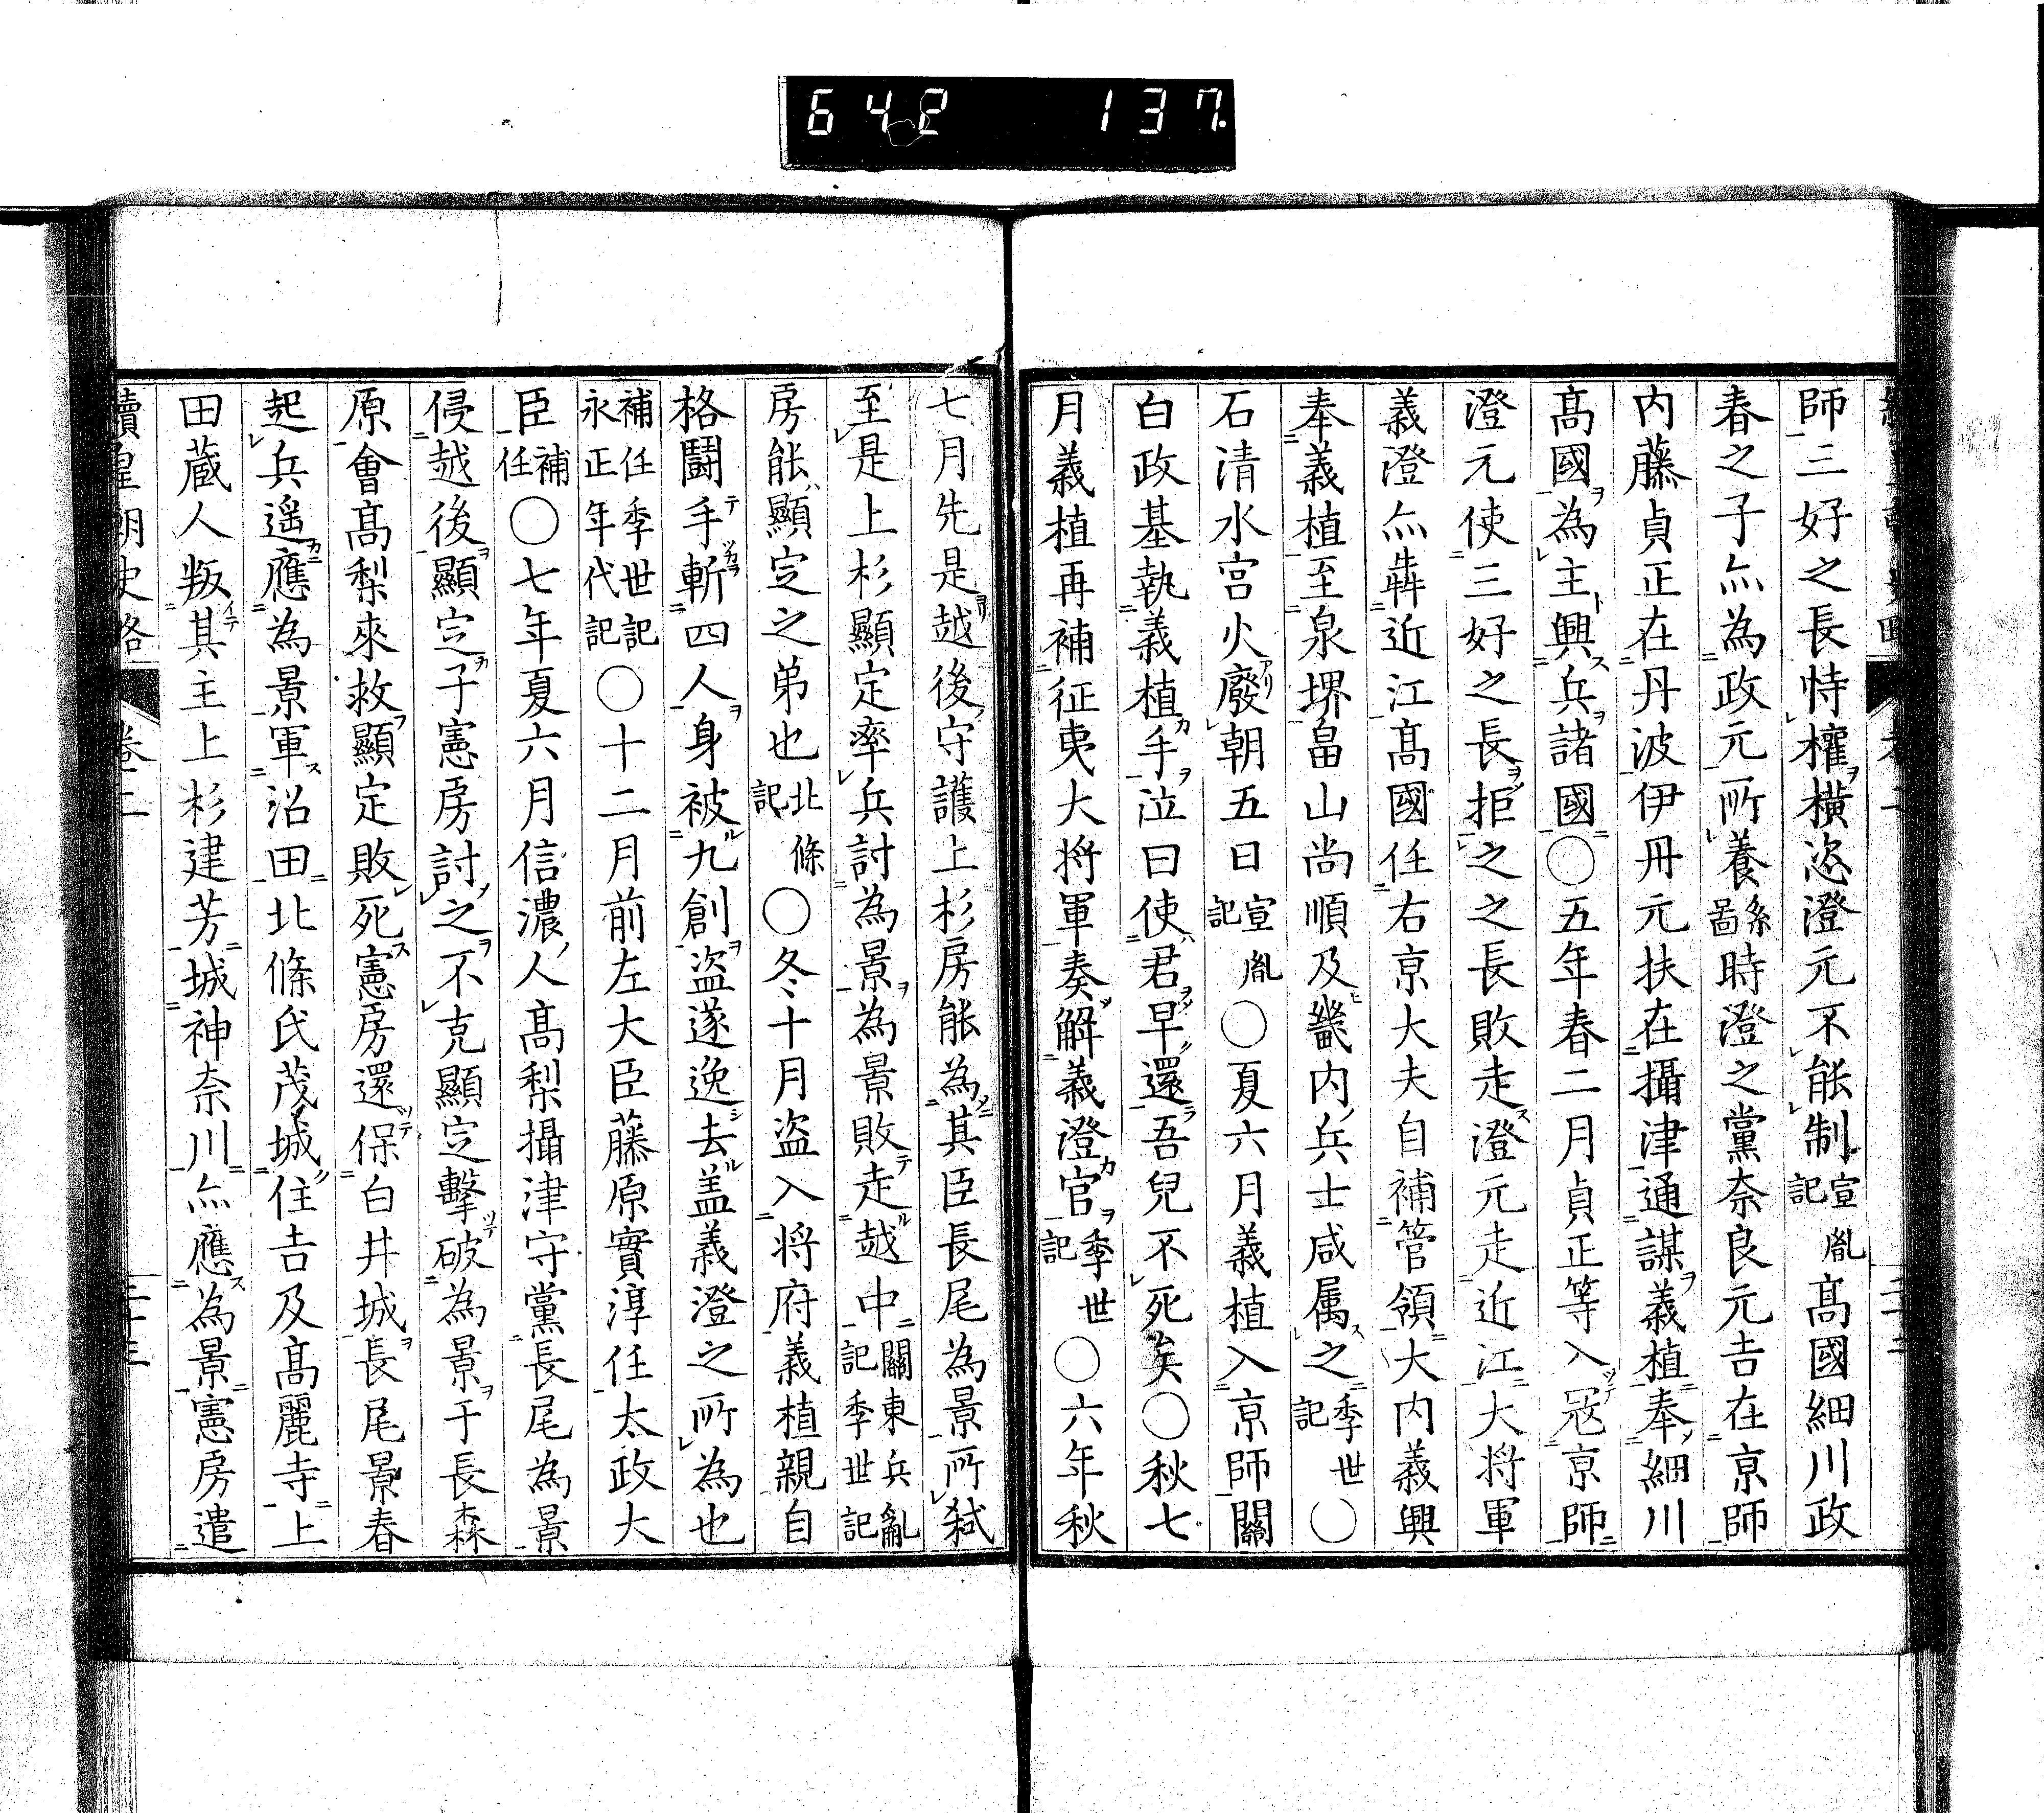 642 137
師三好之長恃權橫恣澄元不能制宣胤記高國細川政
春之子亦為政元所養系圖時澄之黨奈良元吉在京師
内藤貞正在丹波伊丹元扶在攝津通謀義植奉細川
高國為主興兵諸國○五年春二月貞正等入冦京師
澄元使三好之長拒之之長敗走澄元走近江大将軍
義澄亦犇近江高國任右京大夫自補管領大内義興
奉義植至泉堺畠山尚順及畿内兵士咸属之季世記○
石清水宮火廢朝五日宣胤記○夏六月義植入京師關
白政基執義植手泣曰使君早還吾兒不死矣○秋七
月義植再補征夷大将軍奏解義澄官季世記○六年秋
七月先是越後守護上杉房能為其臣長尾為景所弑
至是上杉顯定率兵討為景為景敗走越中關東兵亂記季世記
房能顯定之弟也北條記○冬十月盗入将府義植親自
格鬪手斬四人身被九創盗遂逸去盖義澄之所為也
補任季世記永正年代記○十二月前左大臣藤原實淳任太政大
臣補任○七年夏六月信濃人高梨攝津守黨長尾為景
侵越後顯定子憲房討之不克顯定擊破為景于長森
原會高梨來救顯定敗死憲房還保白井城長尾景春
起兵遥應為景軍沼田北條氏茂城住吉及高麗寺上
田蔵人叛其主上杉建芳城神奈川亦應為景憲房遣
續皇朝史略 卷二 二十三